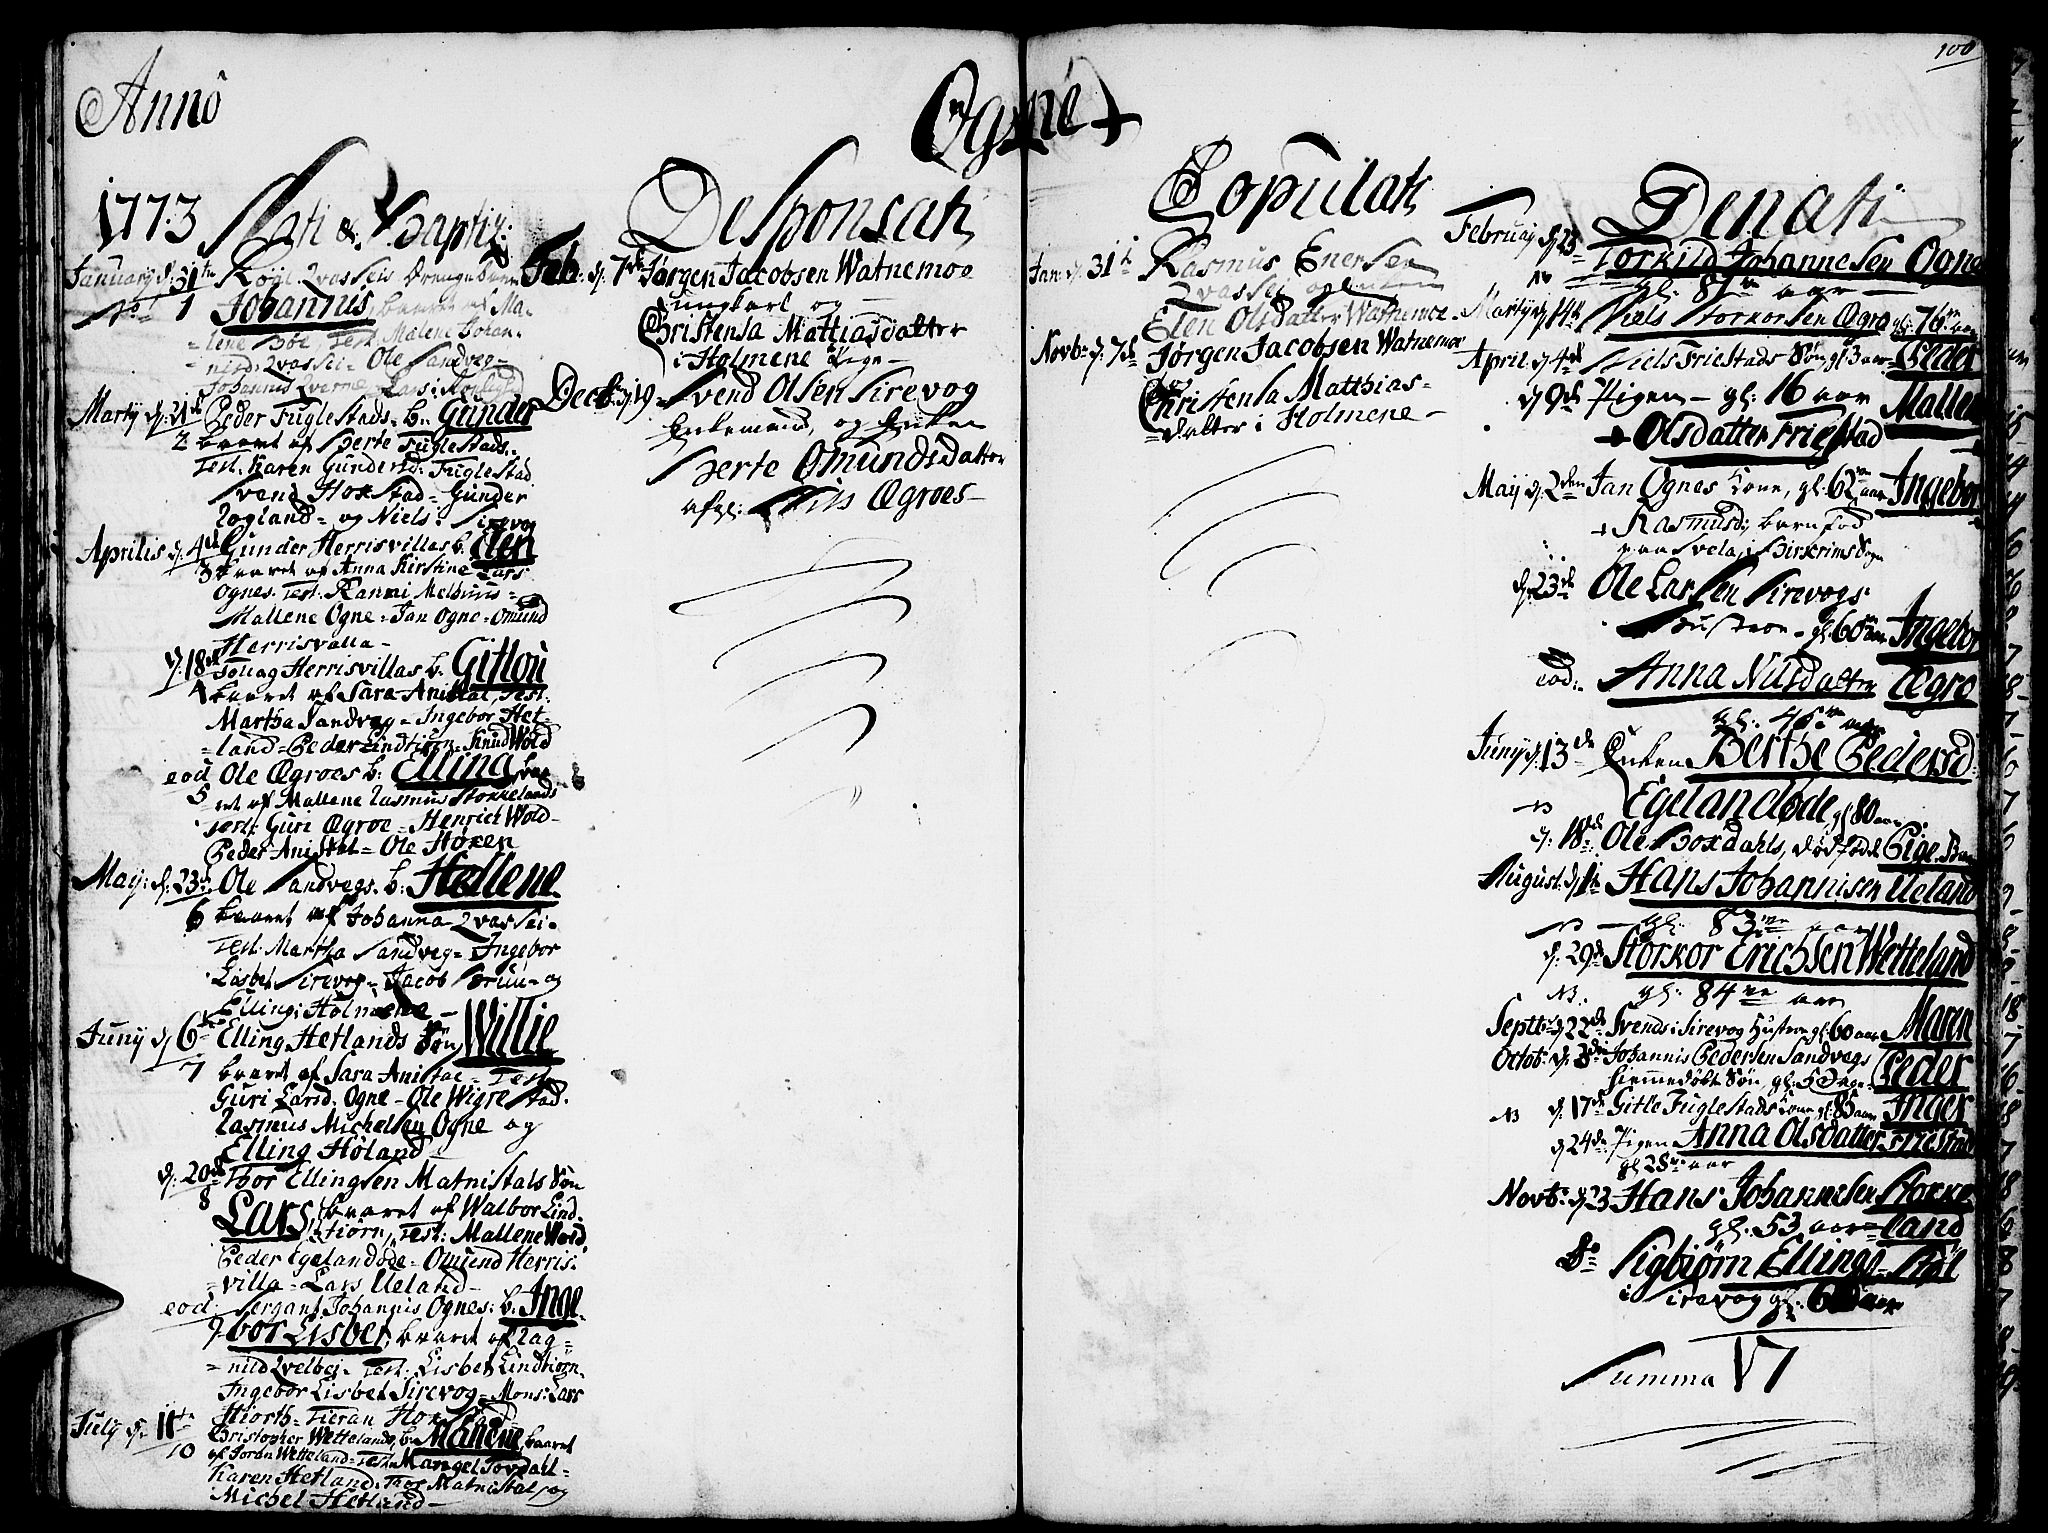 100
Annô
Ogne
1773
Nati & Baptiz:
January d: 31te Rogl Qvasseis Drengebarn
No 1 Johannis, baaret af Ma-
=lene Bøe, Test. Malene Johan-
nisd. Qvassei = Ole Sandveg =
Johannis Qverne
Martÿ d. 21de Peder Fuglestads b. Gunder
2 baaret af Berte Fuglestads.
Test. Karen Gundersd. Fuglestad
Svend Hoxstad = Gunder
Rogland = og Niels Sirevog
Aprilis d. 4de Gunder Herrisvillas b. Elen
3 baaret af Anna Kirstine Lars
Ognes. Test. Ranni Melhuus =
Mallene Ogne = Jan Ogne = Omund
Herrisvalla =
d. 18de Tollag Herrisvillas b. Gitlou
4 baaret af Sara Anistal, Test.
Martha Sandveg = Ingebor Het-
=land = Peder Lindtiørn = Knud Wold
eod Ole Ægroes b: Elling, baa
5 ret af Mallene Rasmus Stokkelands
Test: Guri Ægroe = Henrich Wold =
Peder Anistal = Ole Høxen
Maÿ: d. 23de Ole Sandvegs b: Hellene
6 baaret af Johanna Qvassei =
Test: Martha Sandveg = Ingebor
Lisbet Sirevog = Jacob Bruun = og
Elling i Holmene =
Junÿ d 6te Elling Hetlands Søn Willie
7 baaret af Sara Anistal = Test
Guri Larsd. Ogne = Ole Wigrestad.
Rasmus Michelsen Ogne og
Elling Høland =
d. 20de Thor Ellingsen Matnistals Søn
8 Lars, baaret af Walbor Lind-
tiørn, Test: Mallene Wold
Peder Egelandøde = Omund Herris:
=villa = Lars Ueland =
eod: Sergant Johannis Ognes: b. Inge-
9 bor Lisbet, baaret af Rag=
=nild Qvelbei = Test: Lisbet Lindtiørn
Ingebor Lisbet Sirevog = Mons: Lars
Hiorth = Tieran Hoxstad =
Julÿ d. 11te Christopher Wettelands b. Malene, baaret
10 af Joran Wetteland = Test. Mangel Tordahl =
Karen Hetland. Thor Matnistal, og
Michel Hetland =
Desponsati
Feb: d. 7de Jørgen Jacobsen Watnemoe
ungkarl og =
Christensa Mattiasdatter
i Holmene Pige =
Decb: d. 19 = Svend Olsen Sirevog
Enkemand, og Enken
Berte Omundsdatter
afgl: Nils Ægroes =
Copulati
Jan: d: 31te Rasmus Enersen
Qvassei og Enken
Elen Olsdatter Watnemoe
Novb: d: 7de Jørgen Jacobsen Watnemoe
Christensa Matthias=
=datter i Holmene =
Denati
February d. 25 Torkild Johannesen Ogne
gl: 87ve aar
Martÿ d. 14de Niels Storkorsen Ægroe gl: 76ve aar
April d. 4de Niels Friestads Søn gl: 3 aar Peder
d 9de Pigen = gl: 16 aar Mallene
Olsdatter Friestad
Maÿ d. 2den Jan Ognes Kone, gl: 62ve aar Ingebor
Rasmusd: barnfød
paa Svela i Birkrims Sogn
d. 23de Ole Larsen Sirevogs
Hustroe = gl: 60ve aar Ingebor
eod: Anna Nilsdatter Ægroe
gl: 46ve aar
Junÿ d. 13de Enken Berthe Pedersd:
Egelandøde gl 80 aar
d. 18de Ole Boxdahls, dødfødt Pige Barn
August d. 1te Hans Johannisen Ueland
gl: 83ve aar
d. 29de Storkor Erichsen Wetteland
NB. gl: 84ve aar
Septb: d 22de Svends i Sirevog Hustroe gl: 60 aar Maren
Octob: d. 3de Johannis Pedersen Sandvegs Peder
hiemmedøbt Søn, gl: 5 Dage
NB d. 17de Gitle Fuglestads Kone gl: 85 aar Inger
d 24de Pigen Anna Olsdatter Friestad
gl 28ve aar
Novb: d. 23 Hans Johannesen Stokke-
gl: 53 aar = land
Do Sigbiørn Ellings= Støl
i Sirevog gl:
Summa 17